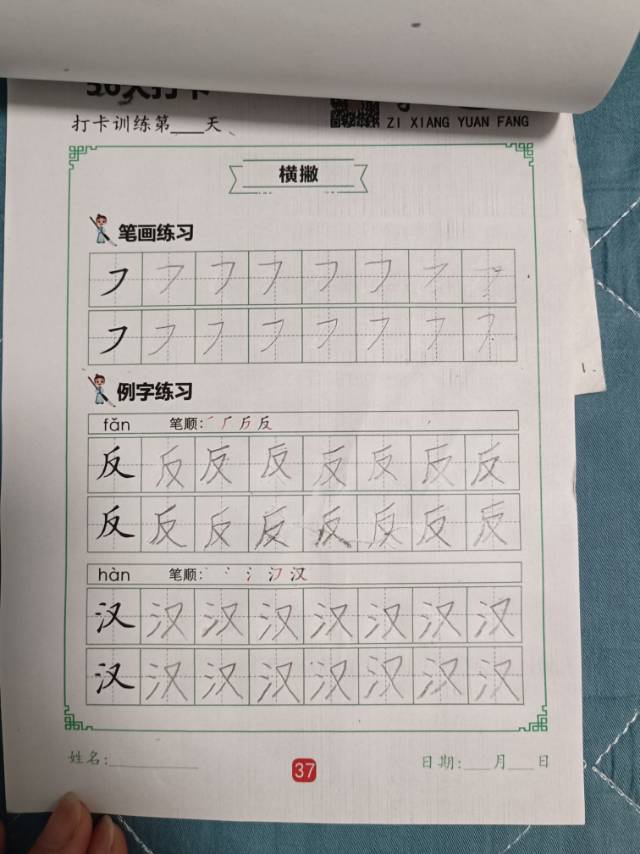 打卡训练第___天
ZI XIANG YUAN FANG
横撇
笔画练习
㇇ ㇇ ㇇ ㇇ ㇇ ㇇ ㇇ ㇇
㇇ ㇇ ㇇ ㇇ ㇇ ㇇ ㇇ ㇇
例字练习
fǎn 笔顺: 反
反 反 反 反 反 反 反 反
反 反 反 反 反 反 反 反
hàn 笔顺: 汉
汉 汉 汉 汉 汉 汉 汉 汉
汉 汉 汉 汉 汉 汉 汉 汉
姓名:________ 37 日期:___月___日